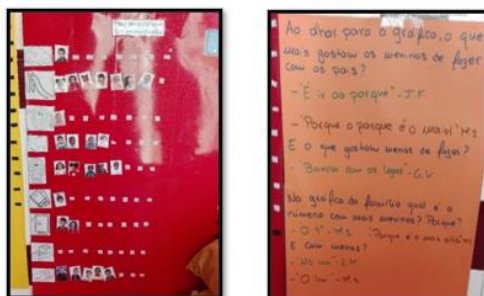 Ao olhar para o gráfico, o que
mais gostam os meninos de fazer
com os pais?
- "É ir ao parque" - J.F.
- "Porque o parque é o maior" M.S.
E o que gostam menos de fazer?
- "Brincar com os legos" - G.V.
No gráfico da família qual é o
número com mais meninos? Porquê?
- O 4" - M.S. "Porque é o mais alto" M.S.
E com menos?
- "No um" - L.M.
- "O um" - M.S.